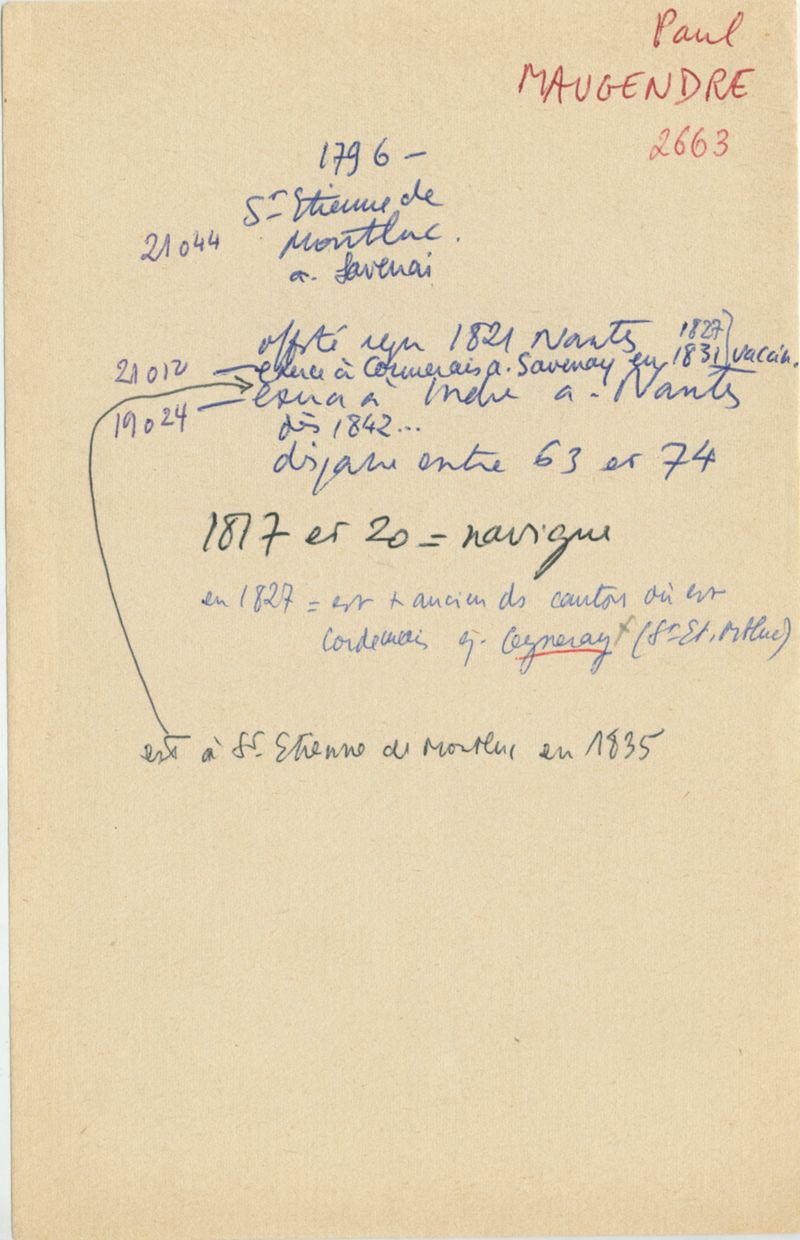 Paul
MAUGENDRE
2663
1796 –
St Etienne de
21044 Montluc.
a. Savenai
offté reçu 1821 Nantes 1827
21012 – exerce à Cormerais a. Savenay en 1831 vaccin.
19024 – exerca à Indre a. Nantes
dès 1842...
disparu entre 63 et 74
1817 et 20 = navigue
en 1827 = est + ancien ds canton où est
Cordemais ej. (St Et. Mtluc)
est à St Etienne de Montluc en 1835